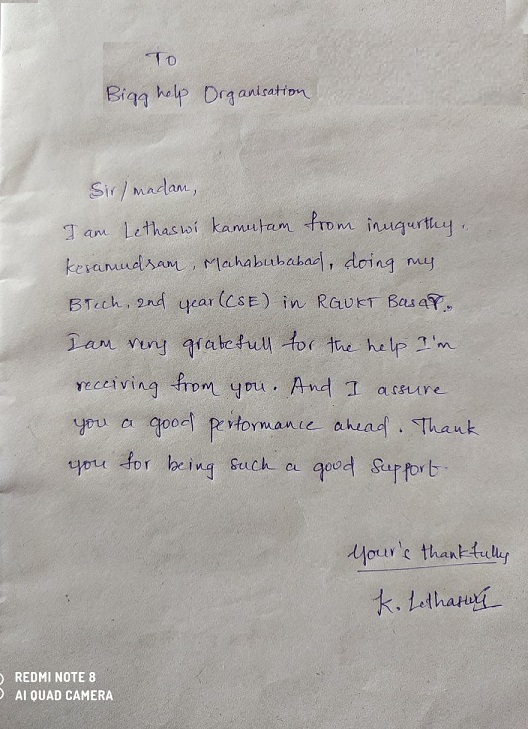 To
Bigg help Organisation
Sir/madam,
I am Lethaswi kamutam from inugurthy,
kesamudram, Mahabubabad, doing my
BTech, 2nd year (CSE) in RGUKT Basar.
I am very gratefull for the help I'm
receiving from you. And I assure
you a good performance ahead. Thank
you for being such a good support.
Your's thankfully
K. Lethaswi
REDMI NOTE 8
AI QUAD CAMERA